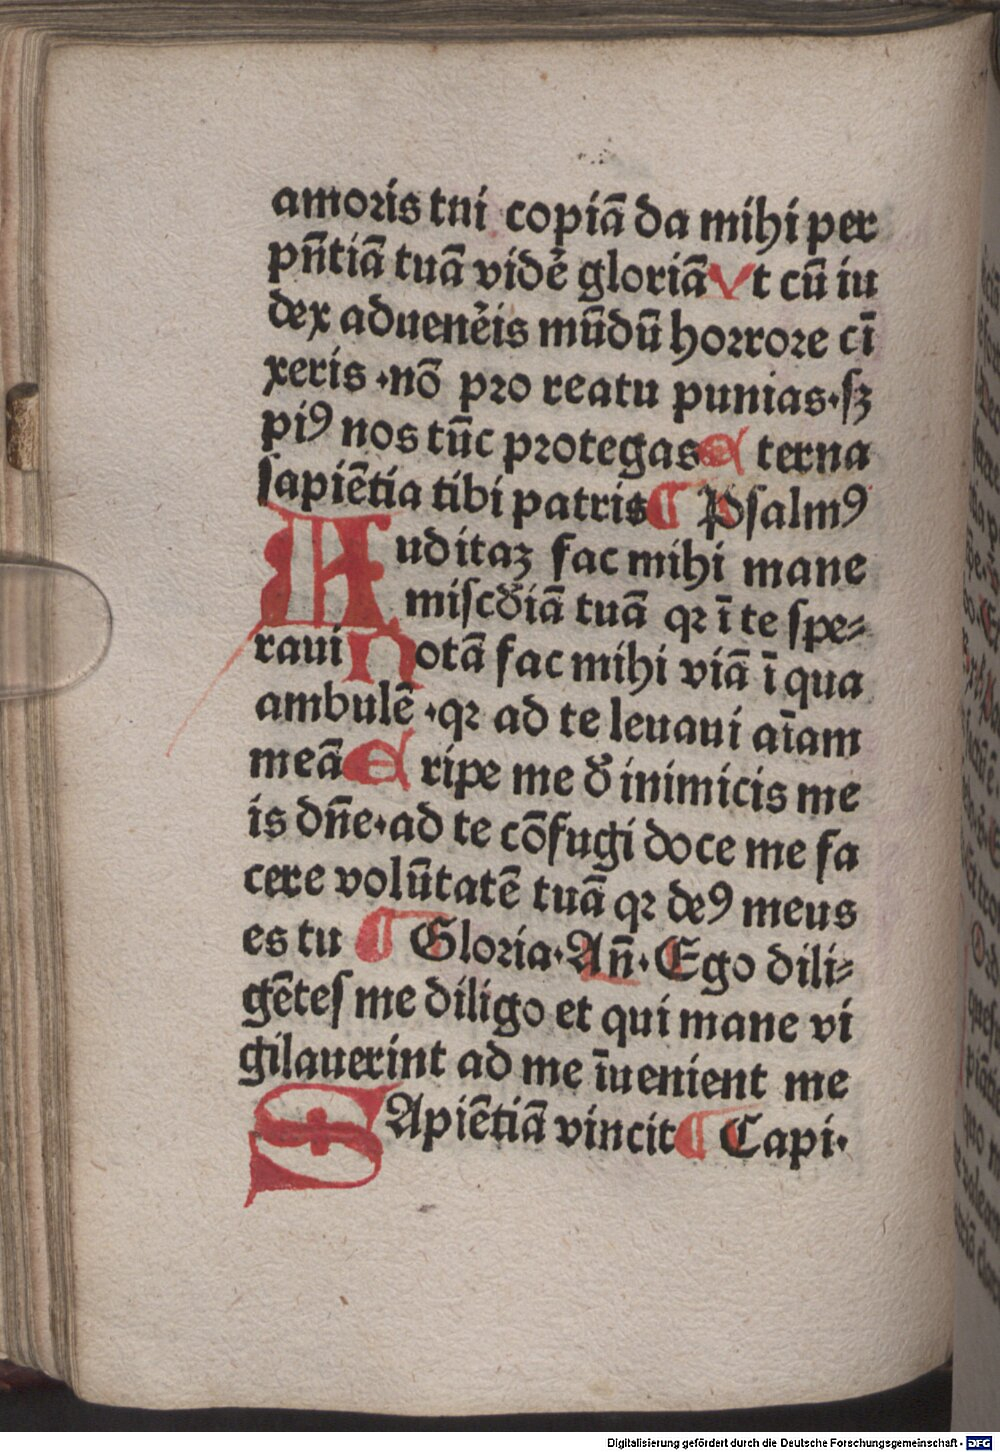 amoris tni copiā da mihi per
pn̄tiā tuā vidē gloriā Vt cū iu
dex aduen̄eis mūdū horrore cī
xeris ·nō pro reatu punias·sꝫ
piꝰ nos tūc protegas E terna
sapiētia tibi patris ¶ Psalmꝰ
Auditaꝫ fac mihi mane
miscd̄iā tuā qꝛ ī te spe⸗
raui Notā fac mihi viā ī qua
ambulē ·qꝛ ad te leuaui aīam
meā E ripe me đ inimicis me
is dn̄e·ad te cōfugi doce me fa
cere volūtatē tuā qꝛ deꝰ meus
es tu ¶ Gloria·An̄·Ego dili⸗
gētes me diligo et qui mane vi
gilauerint ad me īuenient me
SApiētiā vincit ¶ Capi·
Digitalisierung gefördert durch die Deutsche Forschungsgemeinschaft - DFG